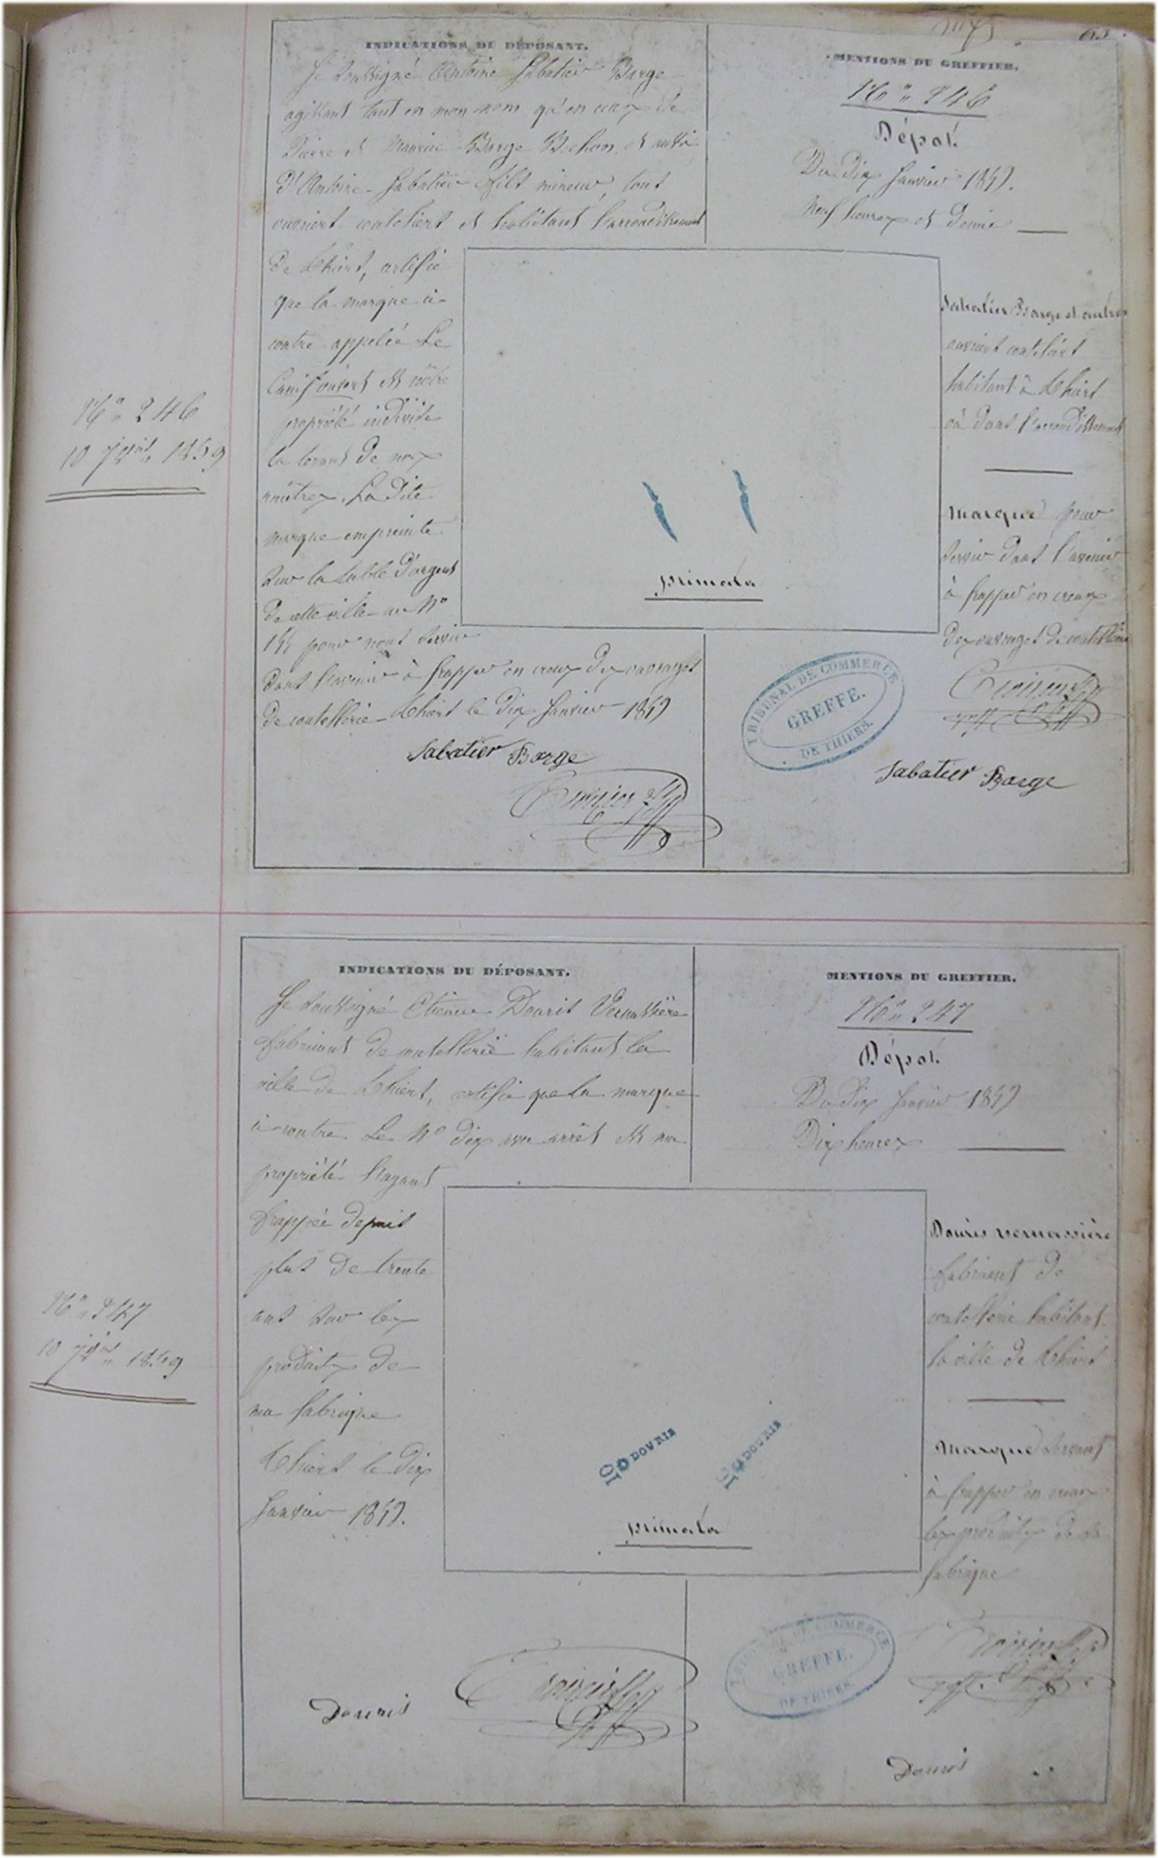 INDICATIONS DU DÉPOSANT.
Je soussigné Antoine Sabatier Barge
agissant tant en mon nom qu'en ceux de
Pierre et Maurice Barge Bechon et aussi
d'Antoine Sabatier fils mineur, tout
ouvriers couteliers et habitant l'arrondissement
de Thiers, certifie
que la marque ci
contre appelée Le
Canif ouvert est nôtre
propriété indivise
la tenant de nos
ancêtres. La dite
marque empreinte
sur la table d'argent
de cette ville au No
pour nous servir
dans l'avenir à frapper en creux des ouvrages
de coutellerie Thiers le dix Janvier 1859
Sabatier Barge
MENTIONS DU GREFFIER.
No 246
Dépot.
Du dix Janvier 1859.
Neuf heures et demie
Sabatier Barge et autres
ouvriers couteliers
habitant à Thiers
où dans l'arrondissement
Marque pour
servir dans l'avenir
à frapper en creux
des ouvrages de coutellerie
primata
TRIBUNAL DE COMMERCE
GREFFE.
DE THIERS.
Sabatier Barge
No 246
10 jer 1859
INDICATIONS DU DÉPOSANT.
Je soussigné Etienne Douris Vernassière
fabricant de coutellerie habitant la
ville de Thiers, certifie que la marque
ci contre Le No dix avec arrêt est ma
propriété l'ayant
frappée depuis
plus de trente
ans sur les
produits de
ma fabrique
Thiers le dix
Janvier 1859.
Douris
MENTIONS DU GREFFIER.
No 247
Dépot.
Du dix Janvier 1859
Dix heures
Douris vernassière
fabricant de
coutellerie habitant
la ville de Thiers
Marque servant
à frapper en creux
les produits de sa
fabrique
10 DOURIS
10 DOURIS
primata
TRIBUNAL DE COMMERCE
GREFFE.
DE THIERS.
Douris
No 247
10 jer 1859